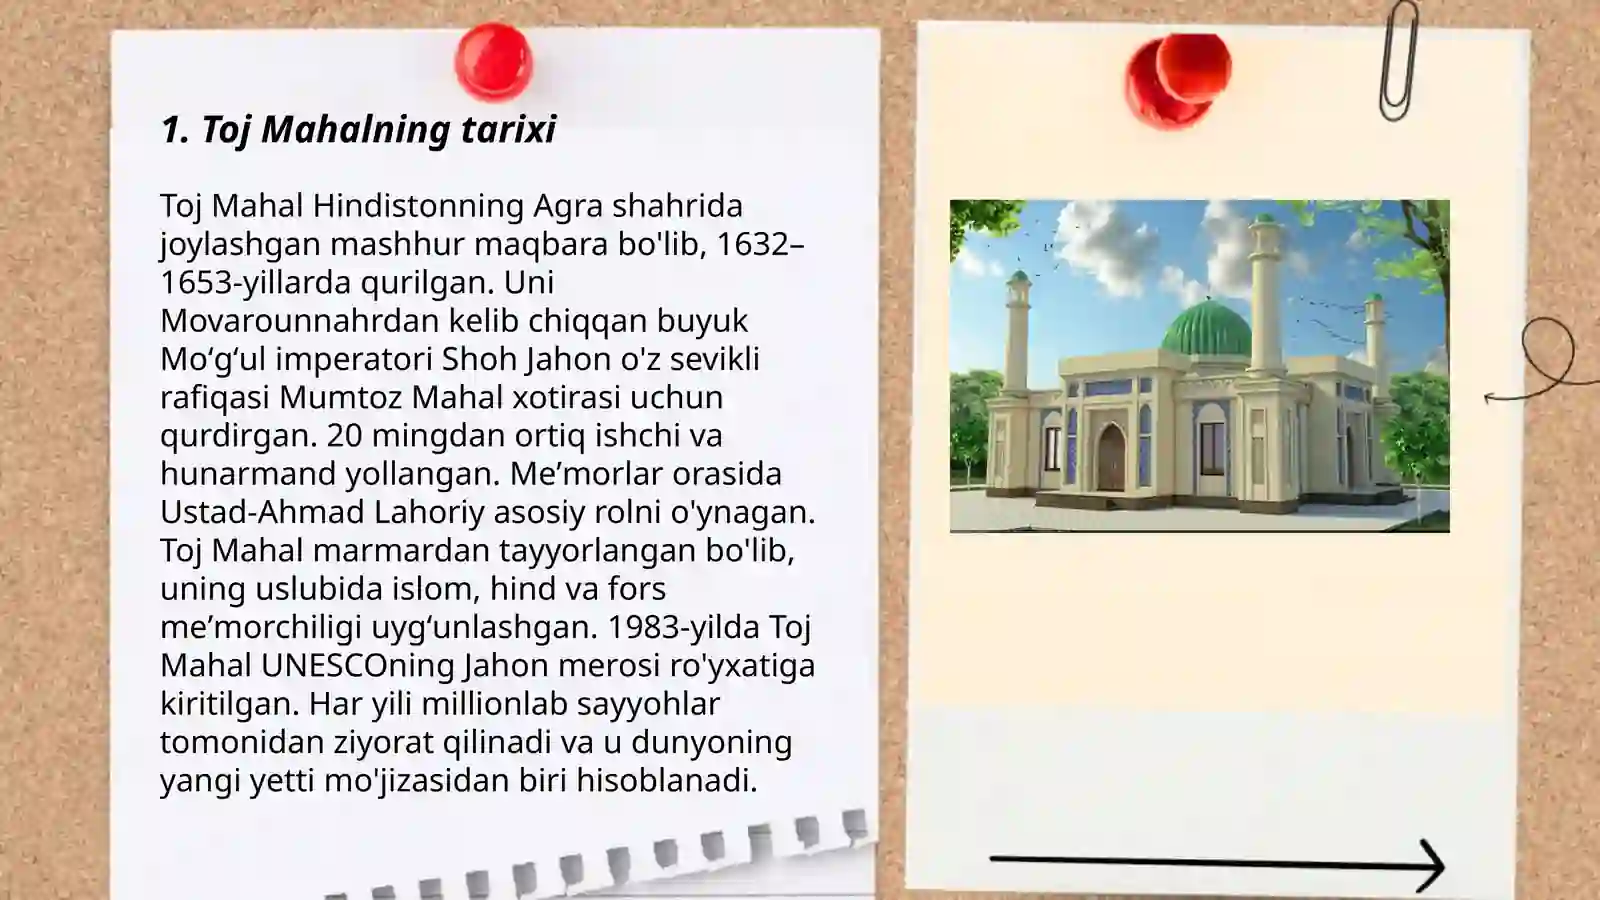 1. Toj Mahalning tarixi
Toj Mahal Hindistonning Agra shahrida
joylashgan mashhur maqbara bo'lib, 1632–
1653-yillarda qurilgan. Uni
Movarounnahrdan kelib chiqqan buyuk
Mo‘g‘ul imperatori Shoh Jahon o'z sevikli
rafiqasi Mumtoz Mahal xotirasi uchun
qurdirgan. 20 mingdan ortiq ishchi va
hunarmand yollangan. Me’morlar orasida
Ustad-Ahmad Lahoriy asosiy rolni o'ynagan.
Toj Mahal marmardan tayyorlangan bo'lib,
uning uslubida islom, hind va fors
me’morchiligi uyg‘unlashgan. 1983-yilda Toj
Mahal UNESCOning Jahon merosi ro'yxatiga
kiritilgan. Har yili millionlab sayyohlar
tomonidan ziyorat qilinadi va u dunyoning
yangi yetti mo'jizasidan biri hisoblanadi.